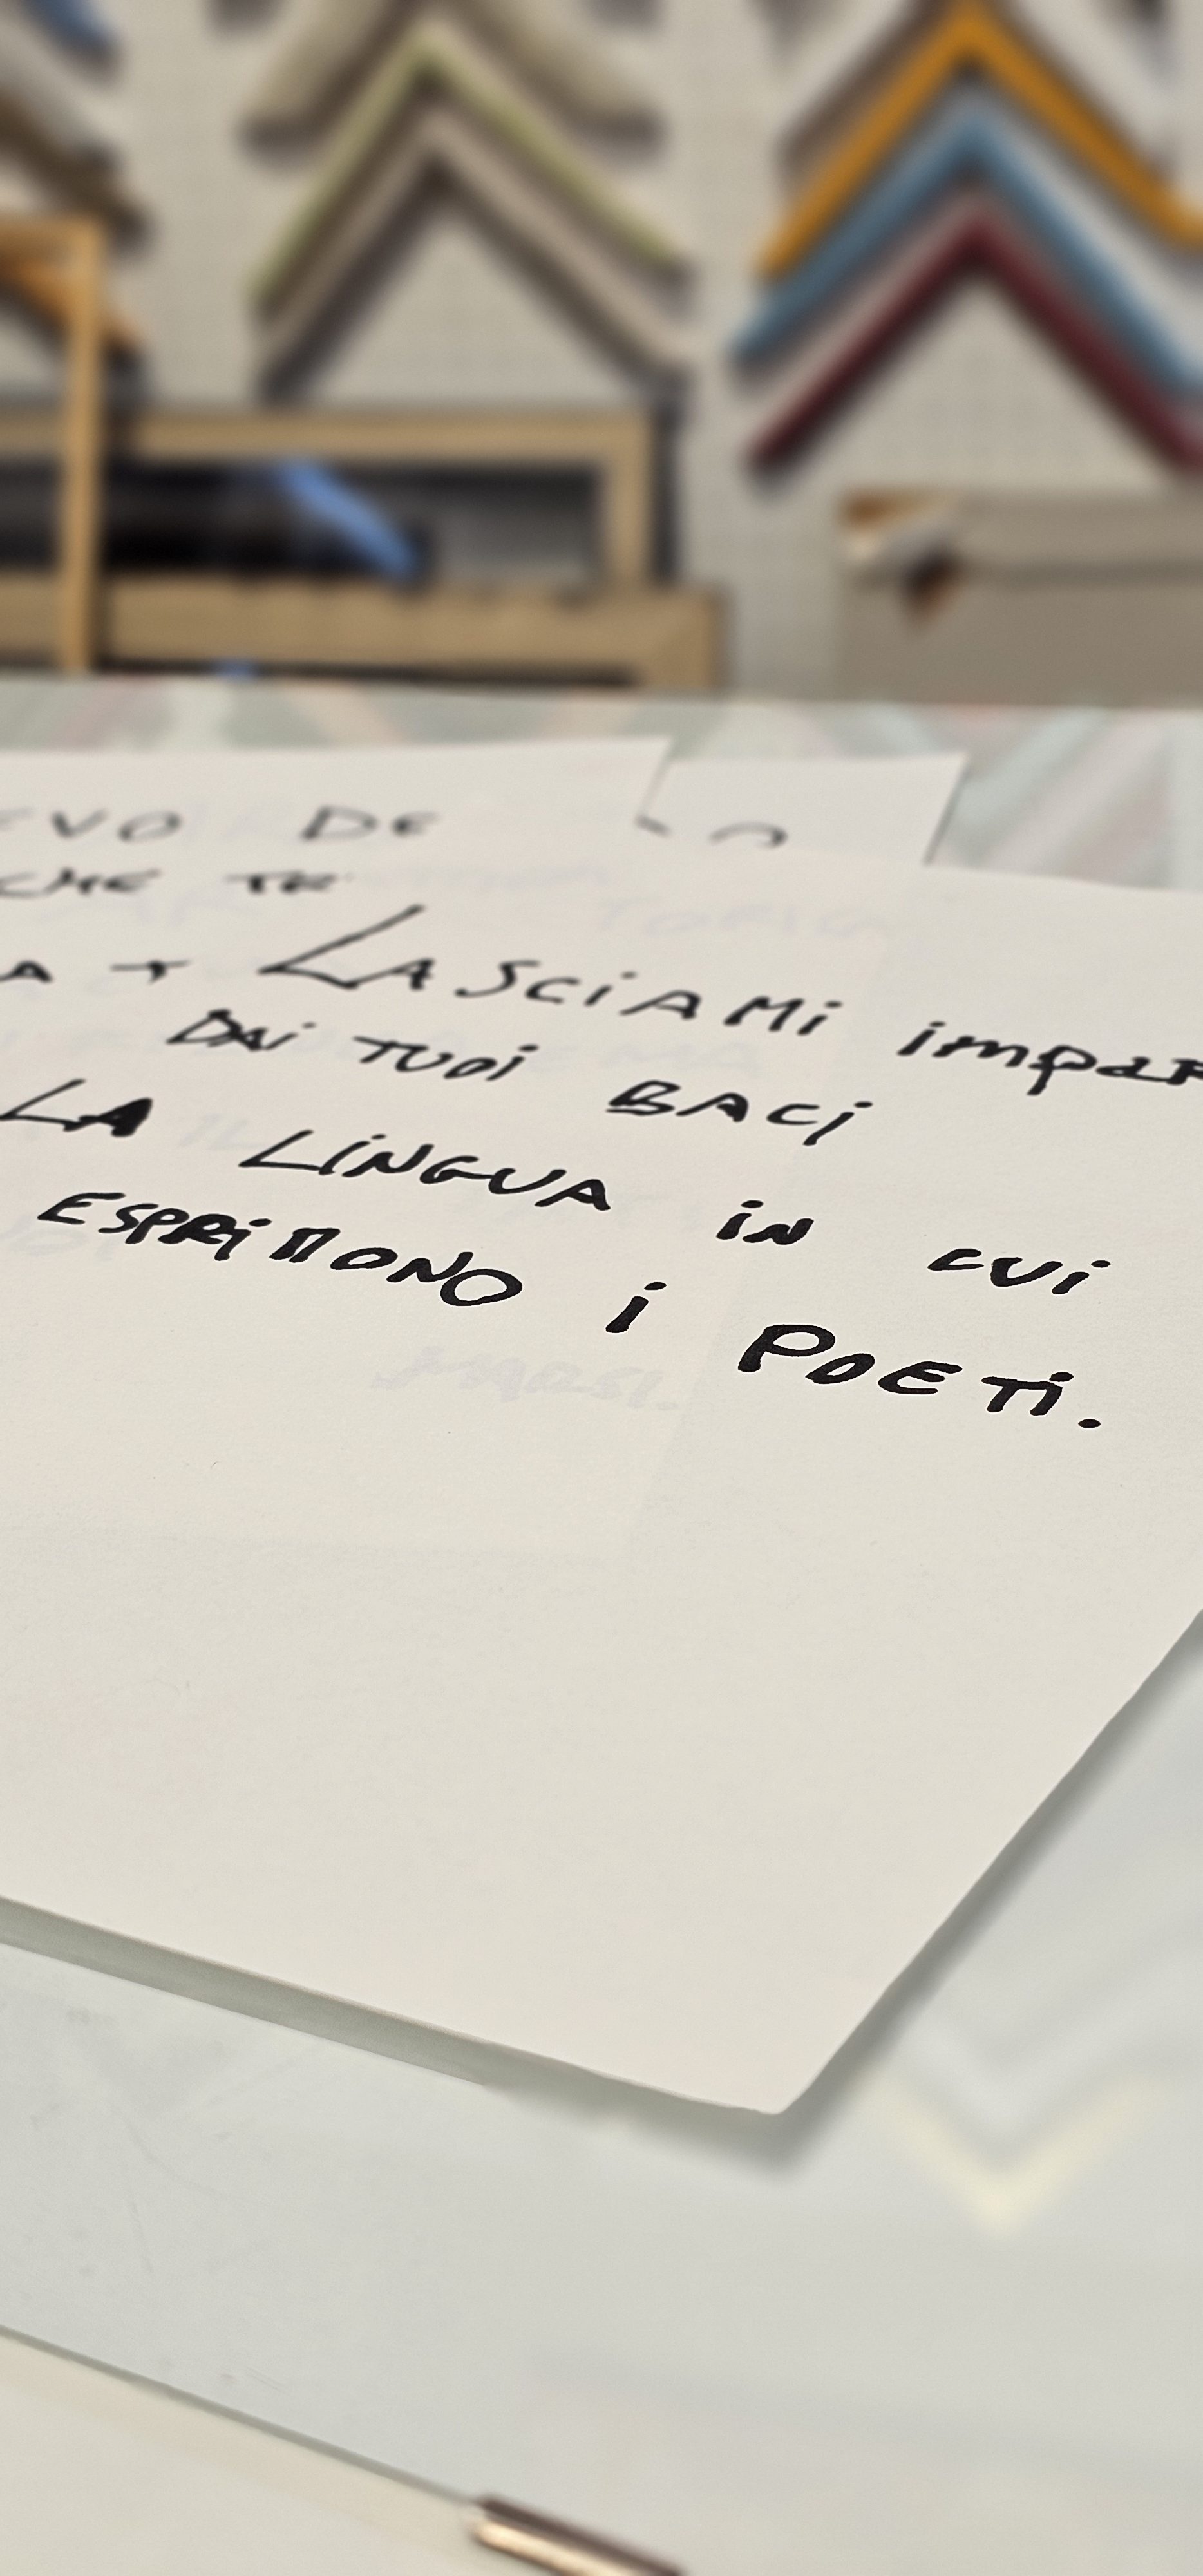 EVO DE
CHE TU
LASCIAMi impar
DAi TUOi BACi
LA LiNGUA iN CUi
ESPRiMONO i POETi.